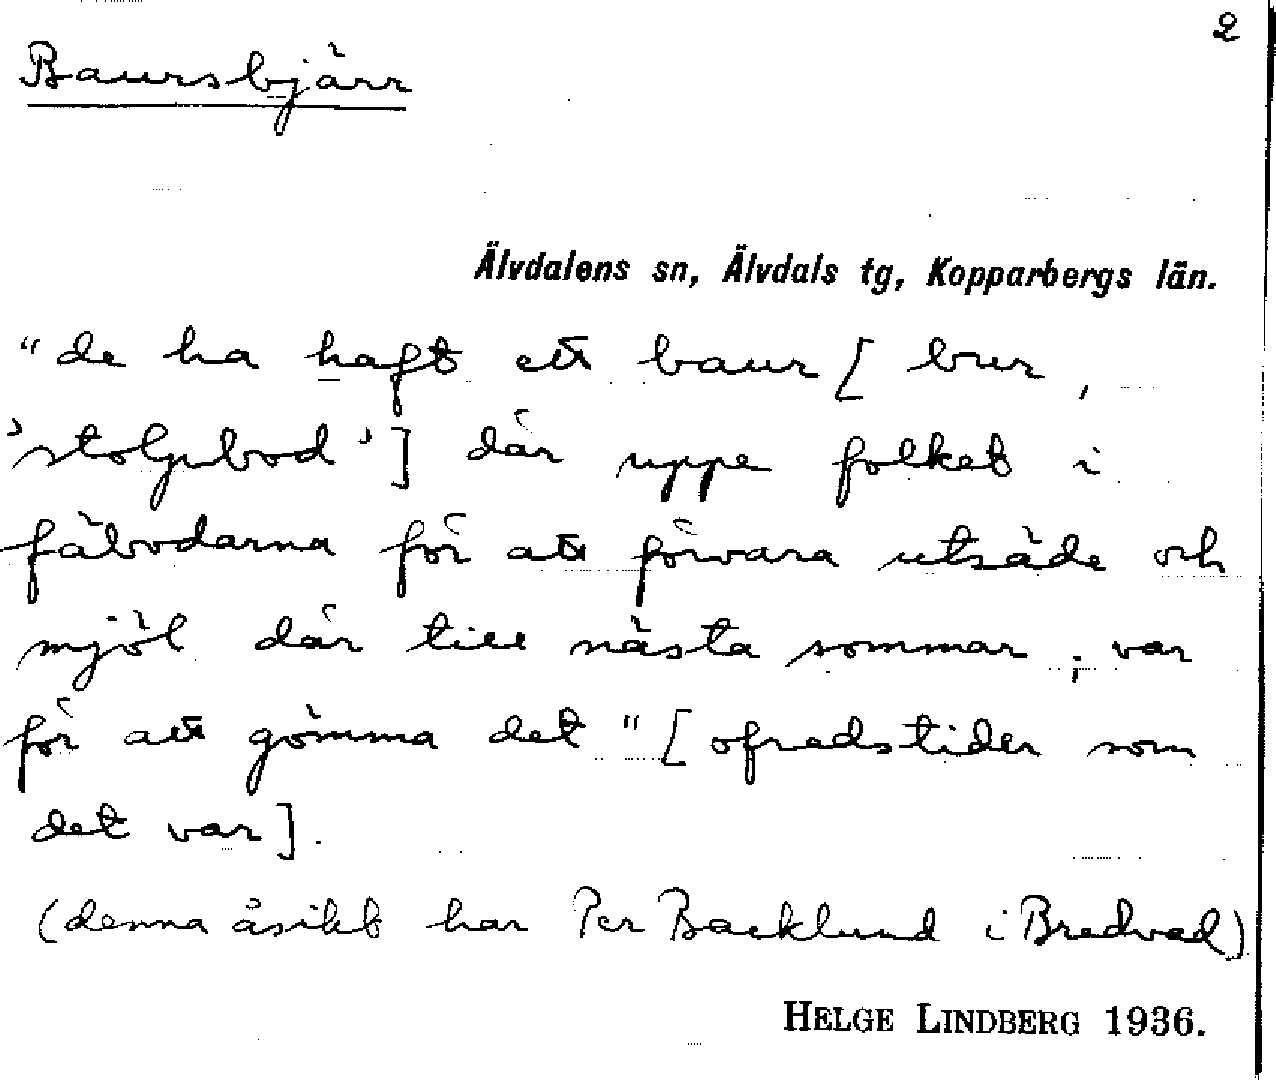 2
Baursbjärr
Älvdalens sn, Älvdals tg, Kopparbergs län.
"de ha haft ett baur [ bur,
'stolpbod'] där uppe folket i
fäbodarna för att förvara utsäde och
mjöl där till nästa sommar; var
för att gömma det" [ofredstider som
det var].
(denna åsikt har Per Backlund i Bredvad)
HELGE LINDBERG 1936.